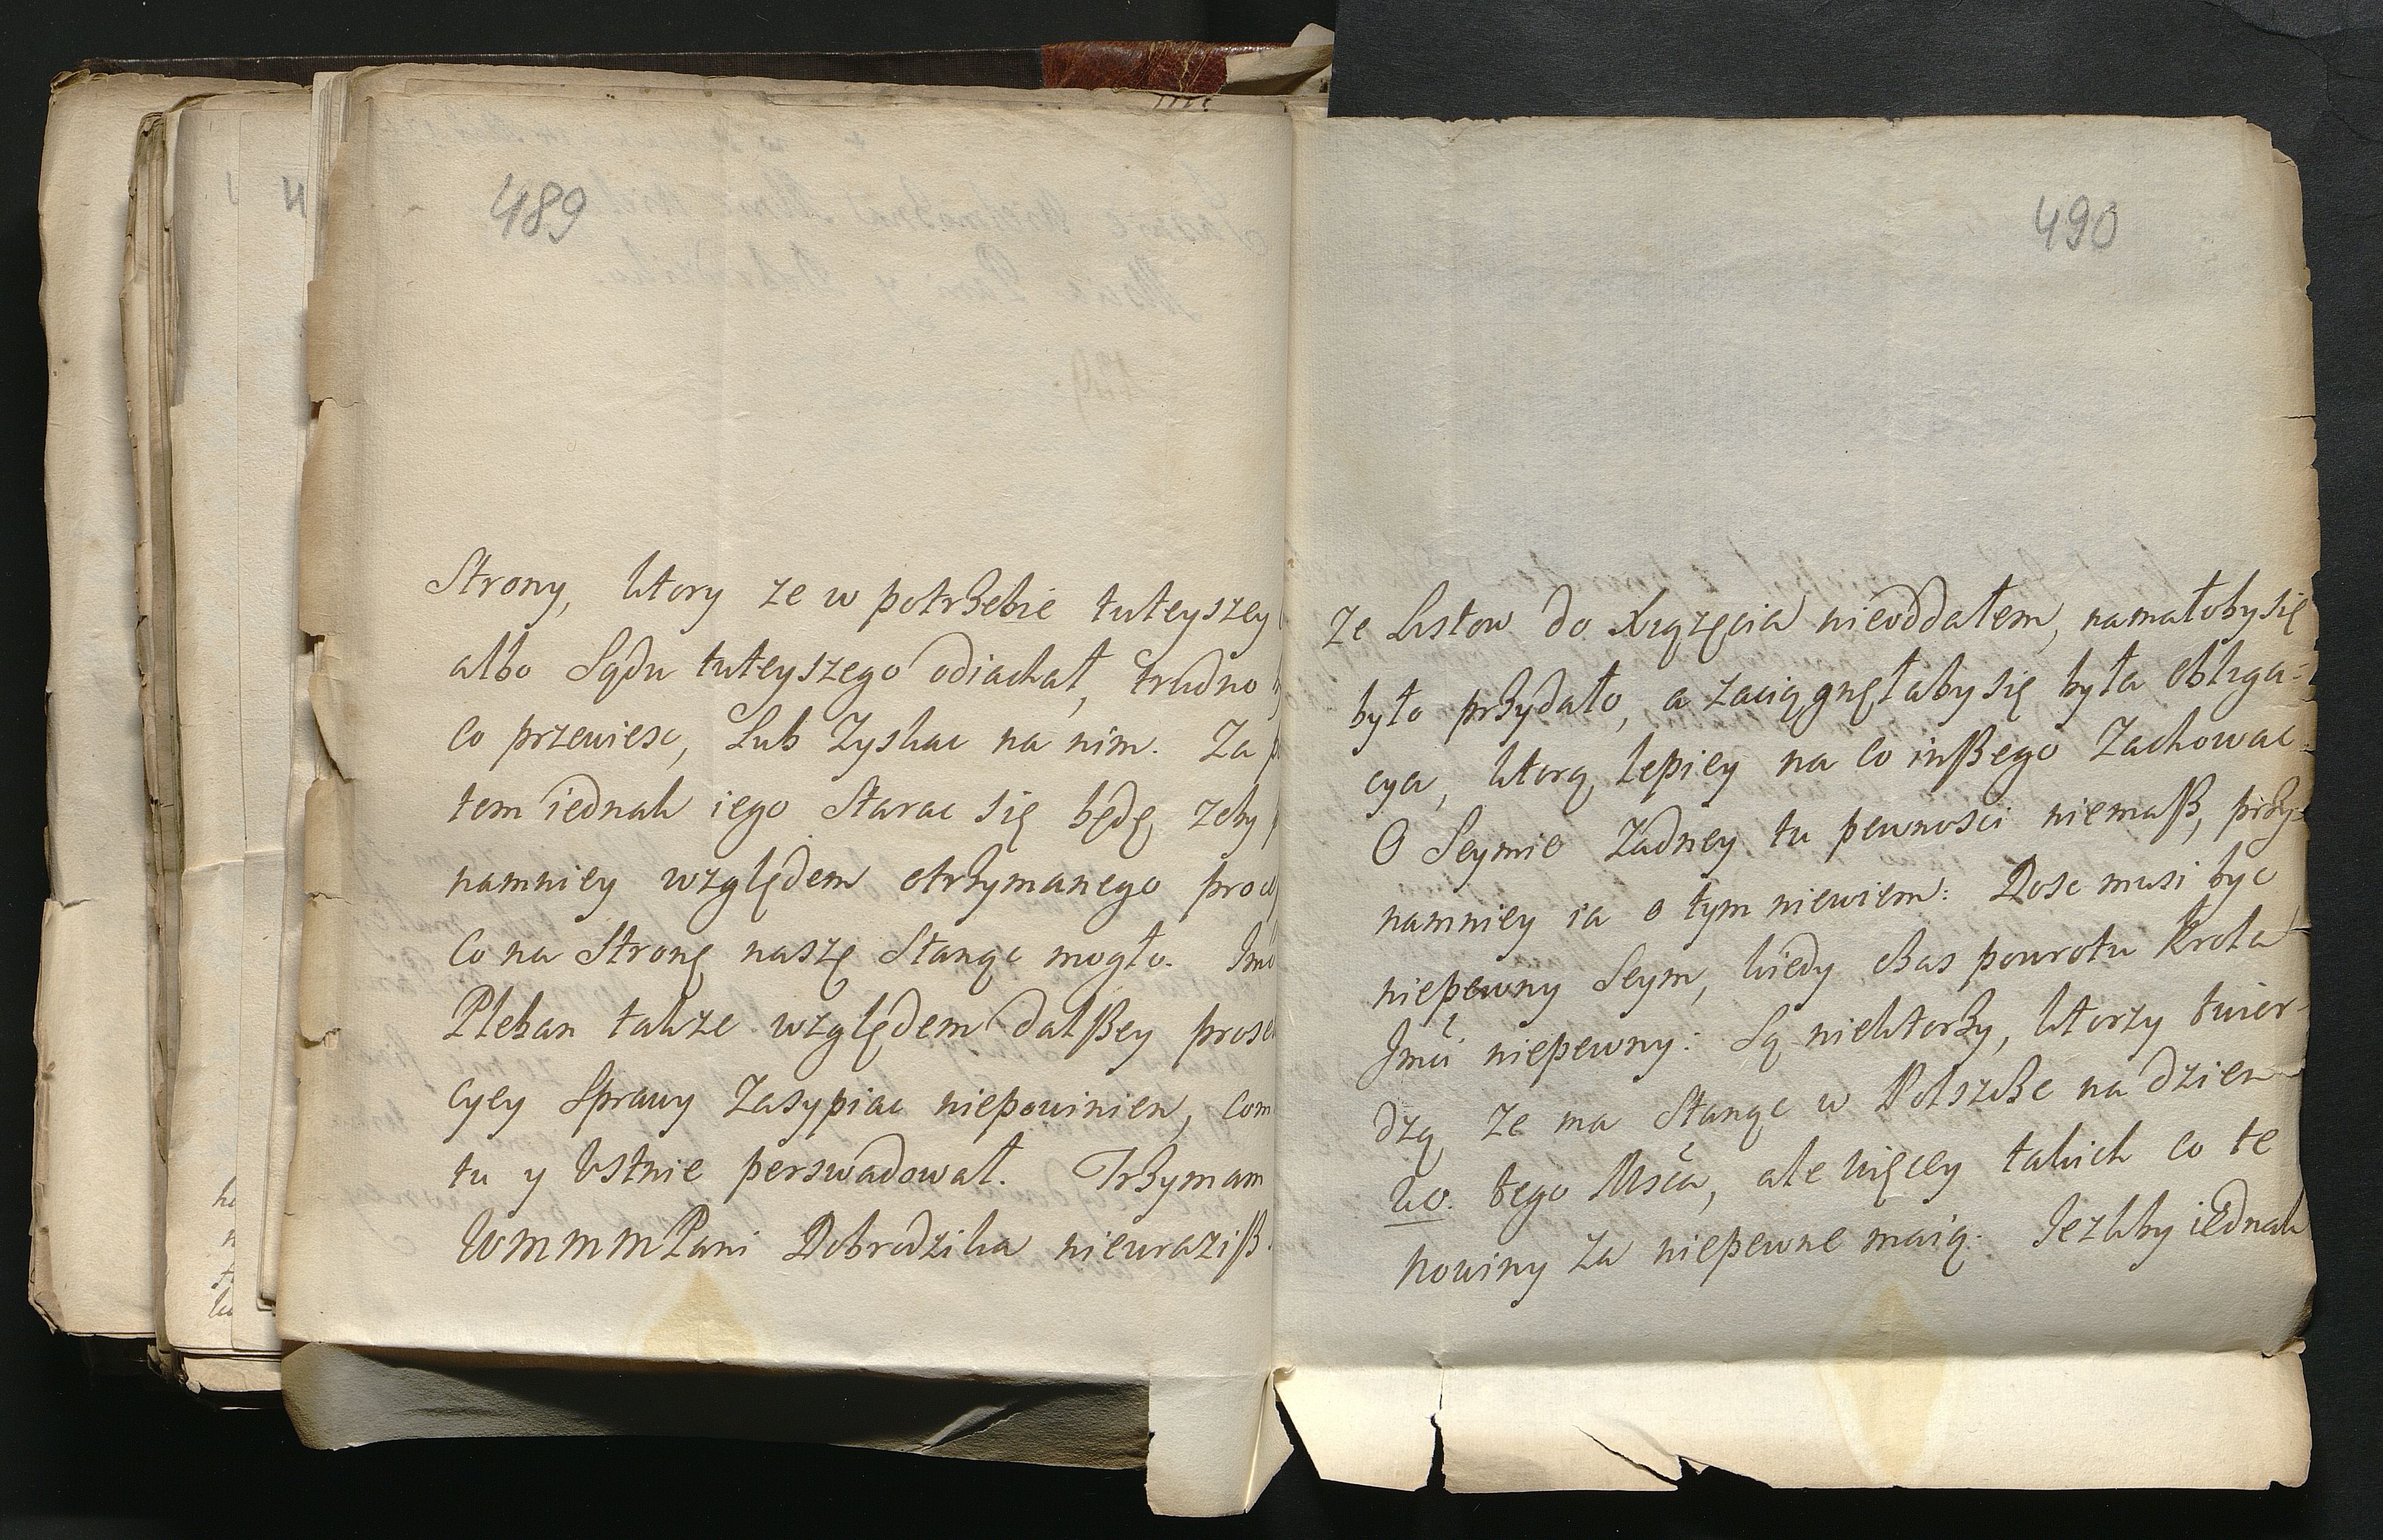 489
Strony, ktory ze w potrzebie tuteyszey
albo Sądu tuteyszego odiachał, trudno
co przewiesc, Lub Zyskac na nim. Za
tem iednak iego Starac się będę, zeby
namniey względem otrzymanego
co na Stronę naszę Stanąc mogło.
Pleban takze względem dalßey
cyey Sprawy Zasypiac niepowinien,
tu y Ustnie perswadował. Trzymam
WMMMPani Dobrodzika nieuraziß
490
Ze Listow do Xiązęcia nieoddałem, namałoby się
było przydało, a zaciągnęłaby się była obliga-
cya, ktorą lepiey na co inßego Zachowac.
O Seymie Zadney tu pewnosci niemaß, przy-
namniey ia o tym niewiem: Dosc musi byc
niepewny Seym, kiedy czas powrotu Krola
Jmci niepewny: Są niektorzy, ktorzy twier-
dzą Ze ma Stanąc w Polszcze na dzien
20. tego Msca, ale więcey takich co te
nowiny za niepewne maią. Jezliby iednak